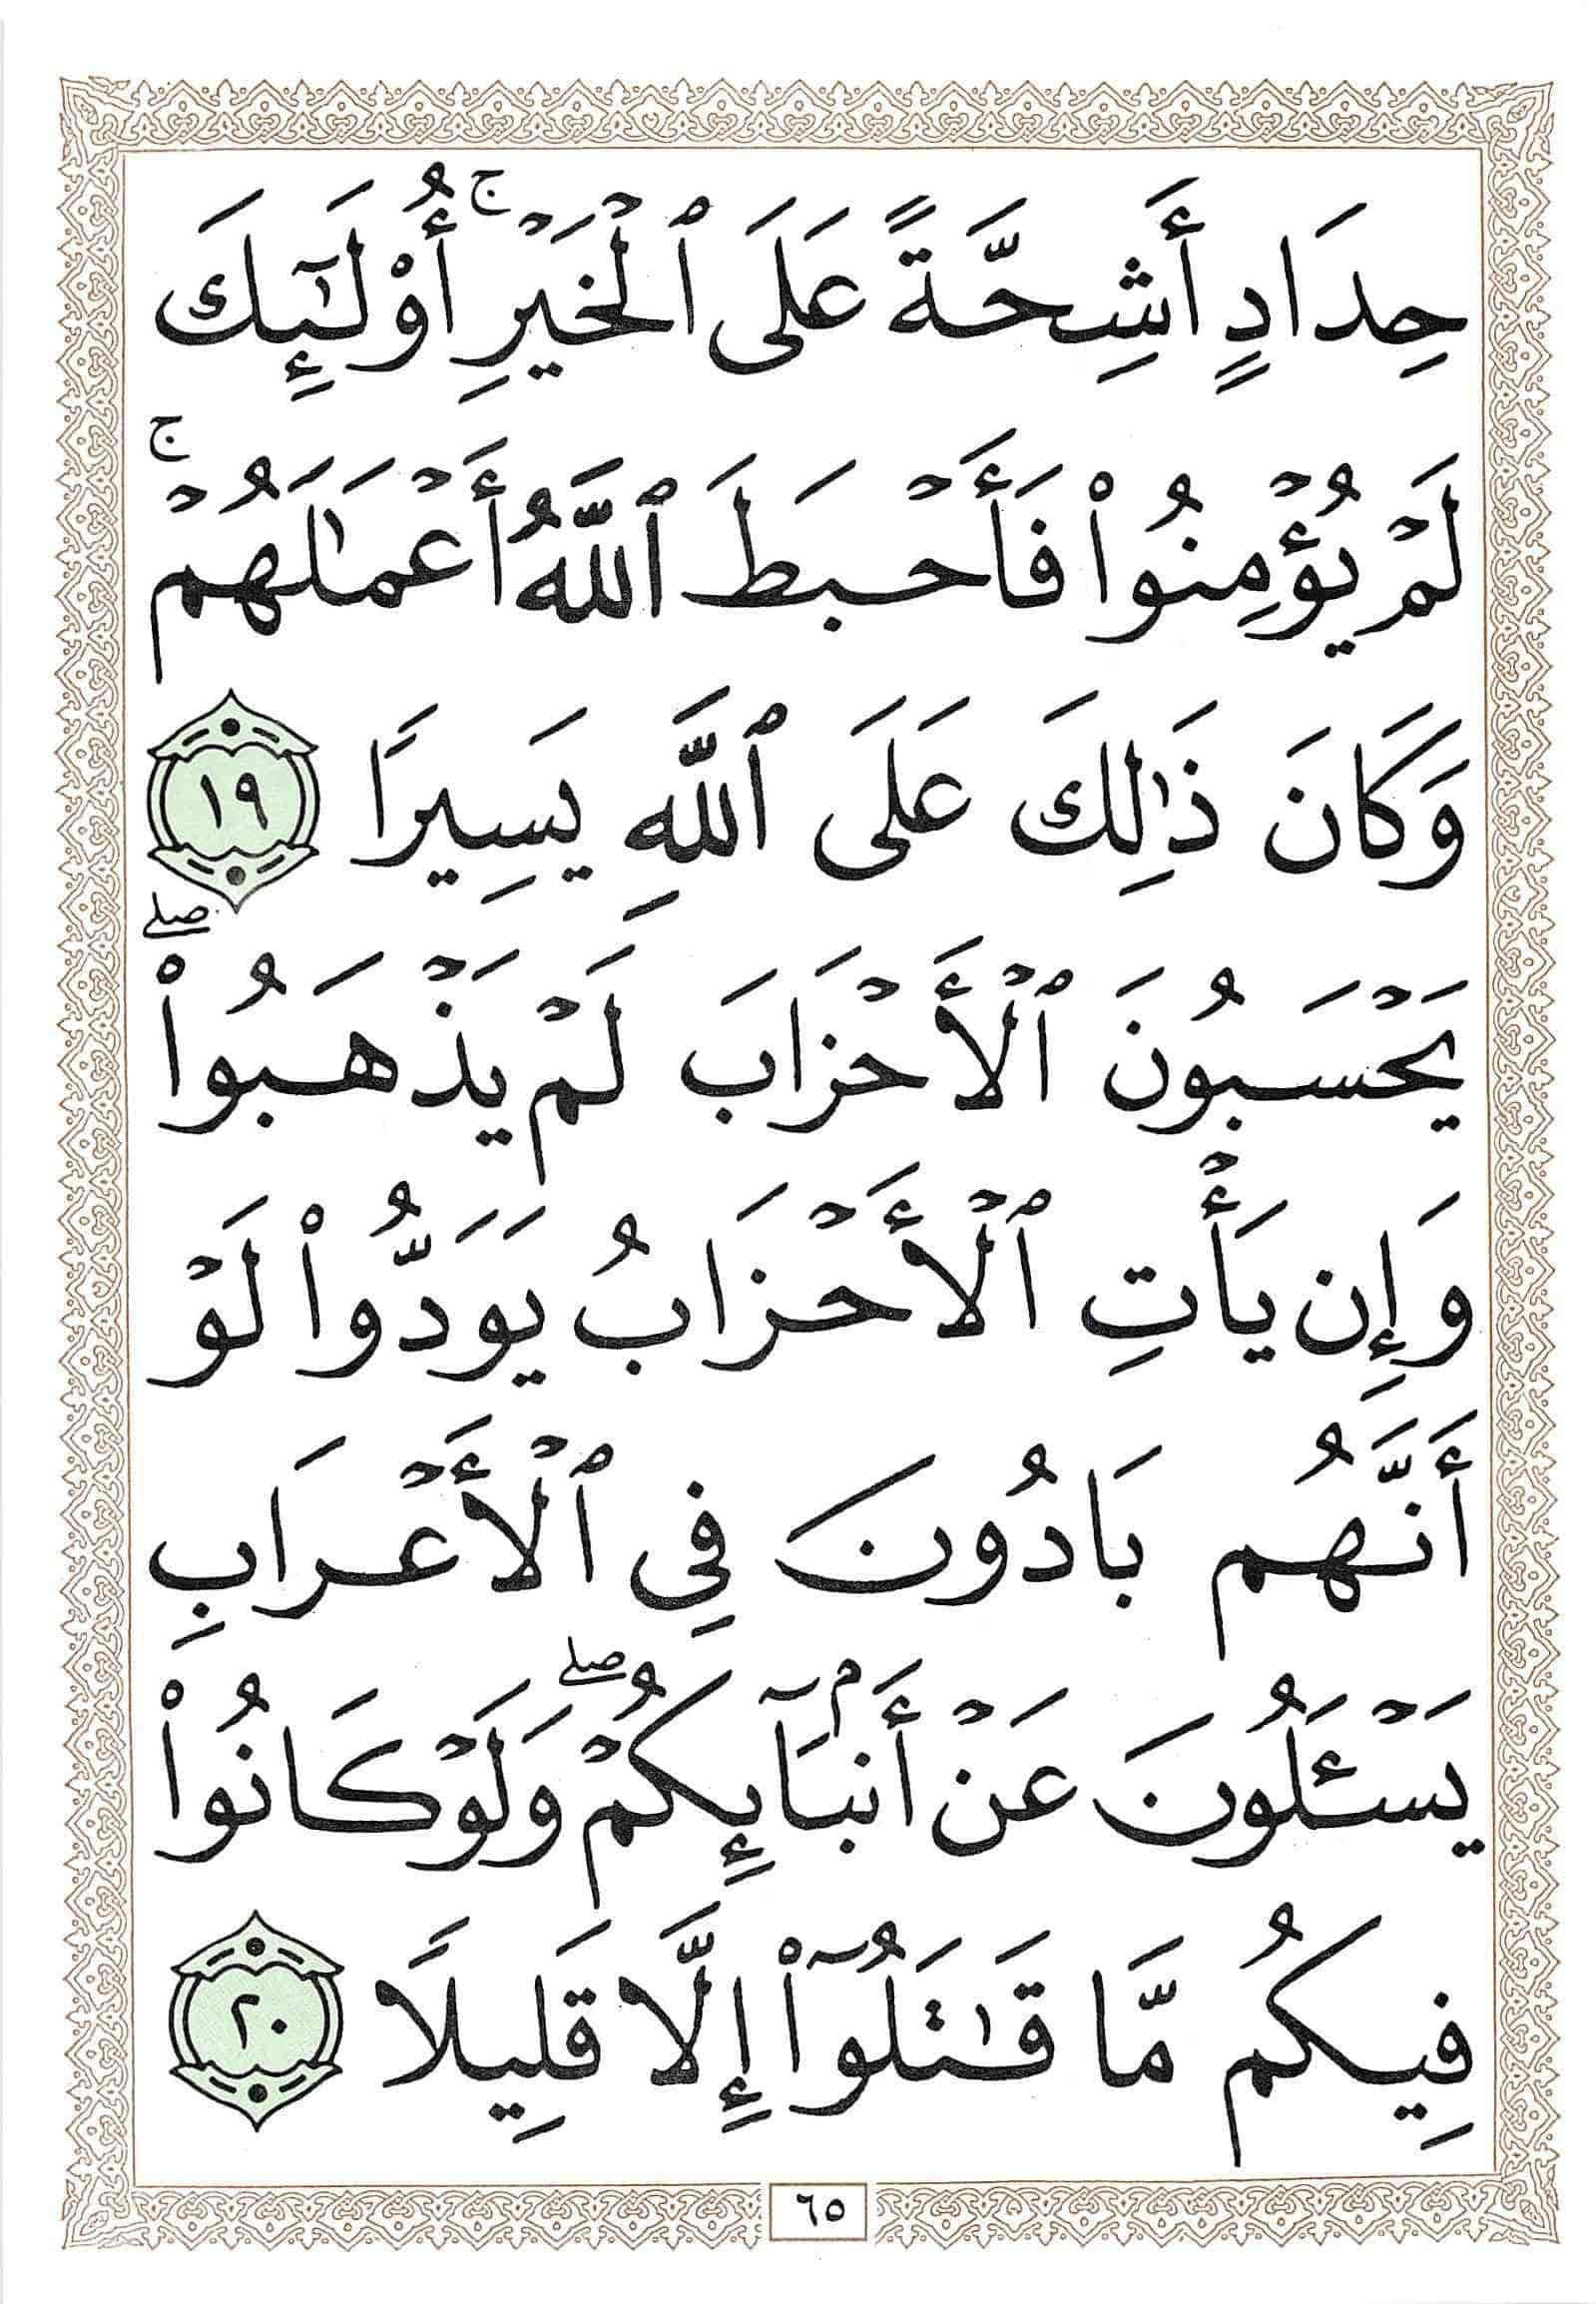 حِدَادٍ أَشِحَّةً عَلَى ٱلْخَيْرِ ۚ أُو۟لَـٰٓئِكَ
لَمْ يُؤْمِنُوا۟ فَأَحْبَطَ ٱللَّهُ أَعْمَـٰلَهُمْ ۚ
وَكَانَ ذَٰلِكَ عَلَى ٱللَّهِ يَسِيرًا ١٩
يَحْسَبُونَ ٱلْأَحْزَابَ لَمْ يَذْهَبُوا۟ ۖ
وَإِن يَأْتِ ٱلْأَحْزَابُ يَوَدُّوا۟ لَوْ
أَنَّهُم بَادُونَ فِى ٱلْأَعْرَابِ
يَسْـَٔلُونَ عَنْ أَنۢبَآئِكُمْ ۖ وَلَوْ كَانُوا۟
فِيكُم مَّا قَـٰتَلُوٓا۟ إِلَّا قَلِيلًا ٢٠
٦٥